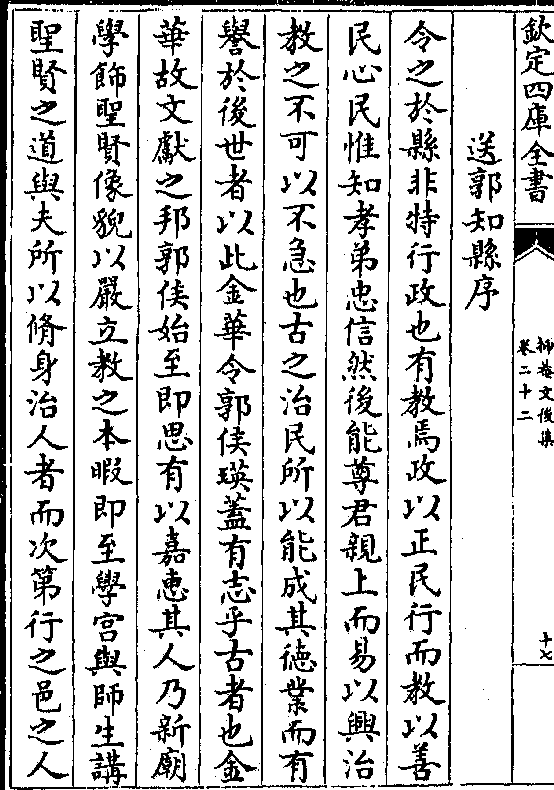 欽定四庫全書
抑菴文後集
卷二十二
十七
送郭知縣序
令之於縣非特行政也有教焉政以正民行而教以善
民心民惟知孝弟忠信然後能尊君親上而易以興治
教之不可以不急也古之治民所以能成其徳業而有
譽於後世者以此金華令郭侯瑛蓋有志乎古者也金
華故文獻之邦郭侯始至即思有以嘉惠其人乃新廟
學飾聖賢像貌以嚴立教之本暇即至學宫與師生講
聖賢之道與夫所以脩身治人者而次第行之邑之人